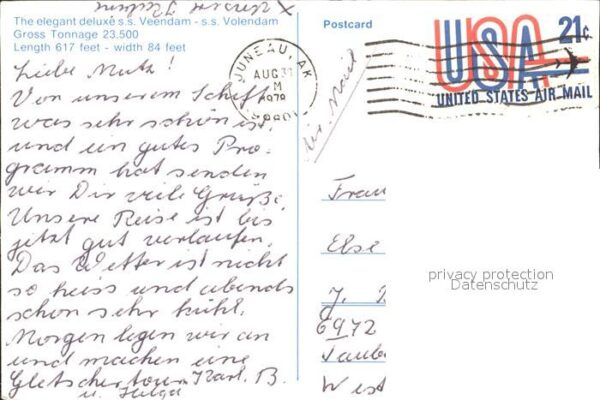 The elegant deluxe s.s. Veendam - s.s. Volendam
Gross Tonnage 23.500
Length 617 feet - width 84 feet
Liebe Mutz!
Von unserem Schiff
was sehr schön ist,
und ein gutes Pro-
gramm hat senden
wir Dir viele Grüße.
Unsere Reise ist bis
jetzt gut verlaufen.
Das Wetter ist nicht
so heiss und abends
schon sehr kühl.
Morgen legen wir an
und machen eine
Gletschertour. Karl. B.
u. Helga
Postcard
JUNEAU, AK
AUG 31
M
1979
USA 21c
UNITED STATES AIR MAIL
Air Mail
Frau
Else
J.
6972
Taube
West
privacy protection
Datenschutz